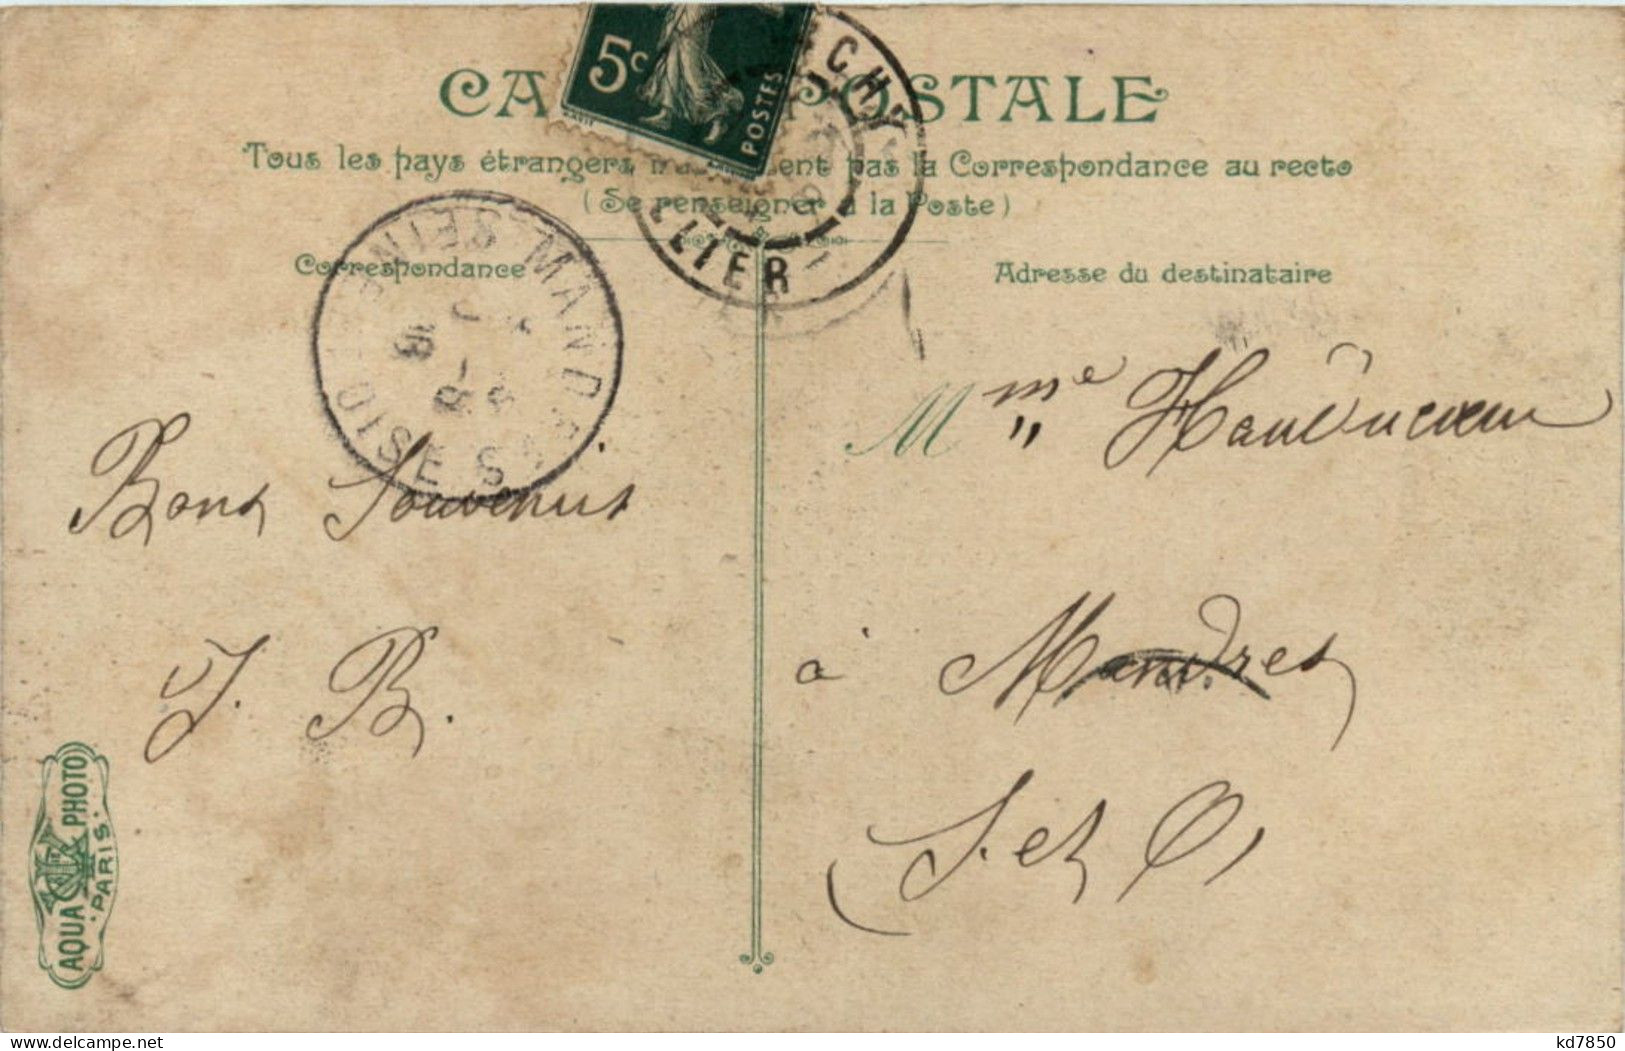 5c
POSTES
CA POSTALE
Tous les pays étrangers pas la Correspondance au recto
(Se renseigner à la Poste)
LIER
Correspondance
Adresse du destinataire
MANDRES
SEINE & OISE
Mme
Bons Souvenirs
J. B.
à Mandres
(S. et O)
AQUA PHOTO
PARIS
kd7850